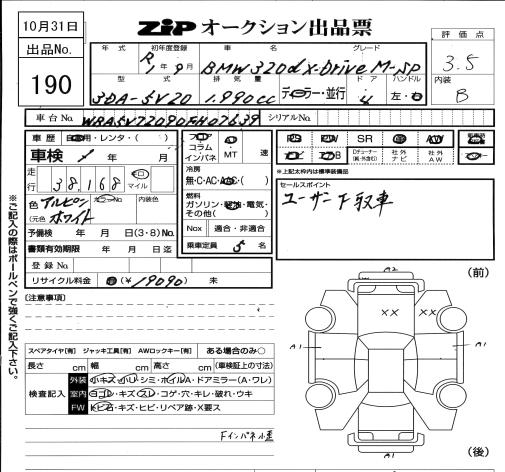 10月31日
ZiP オークション出品票
出品No.
190
評価点
3.5
内装
B
年式 初年度登録 車名 グレード
R1年9月 BMW320d x-Drive M-SP
型式 排気量 ドア ハンドル
3DA-5V20 1,990cc ディーラー・並行 4 左・右
車台No. WBA5V72090FH07639 シリアルNo.
車歴 自家用・レンタ・( )
フロア
コラム
インパネ
MT 速
車検 年 月
走行 38,168 キロ マイル
冷房
無・C・AC・AAC・( )
色 アルピン カラーNo. 内装色
(元色) ホワイト
燃料
ガソリン・軽油・電気・
その他( )
予備検 年 月 日(3・8)No.
Nox 適合・非適合
書類有効期限 年 月 日迄
乗車定員 5 名
登録No.
リサイクル料金 (¥19090) 未
PS PW SR AW
ナビ エアB Dチューナー(純・外含む) 社外ナビ 社外AW
*上記太枠内は標準装備品
セールスポイント
ユーザー下取車
(注意事項)
スペアタイヤ[有] ジャッキ工具[有] AWロックキー[有] ある場合のみ○
長さ cm 幅 cm 高さ cm (車検証上の寸法)
検査記入
外装 小キズ・小U・シミ・ホイルA・ドアミラー(A・ワレ)
室内 ヨゴレ・キズ・スレ・コゲ・穴・キレ・破れ・ウキ
FW トビ石・キズ・ヒビ・リペア跡・X要ス
Fインパネ小歪
※ご記入の際はボールペンで強くご記入下さい。
(前)
A2
XX XX
A1 A1
A1
(後)